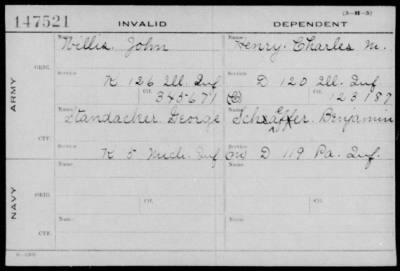 (3-H-5)
147521 INVALID DEPENDENT
Name: Name:
Willis, John Henry, Charles M.
ORIG. Service Service
K 126 Ill. Inf D 120 Ill. Inf
ARMY Ctf. Ctf.
345671 (C) 123187
Name: Name:
Standacher George Schaffer, Benjamin
CTF. Service
K 5 Mich. Inf D 119 Pa. Inf.
Name: Name:
ORIG. Ctf. Ctf.
NAVY
Name: Name:
CTF.